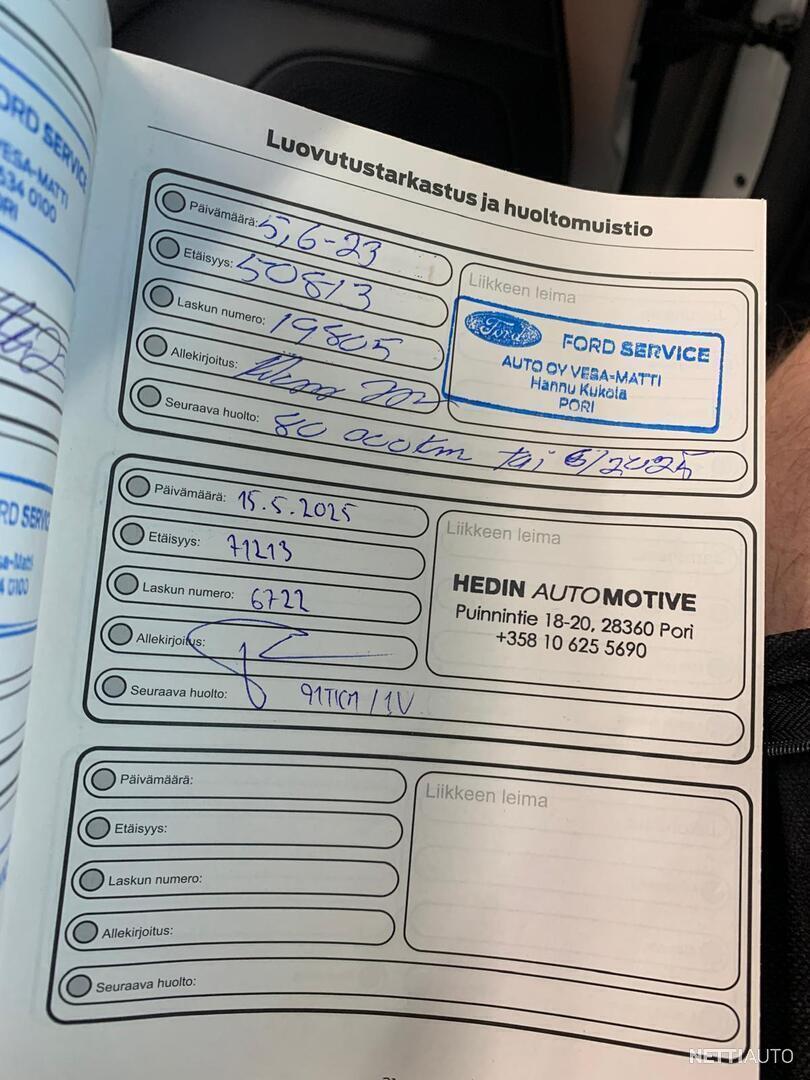 ORD SERVICE
ESA-MATTI
534 0100
PORI
Luovutustarkastus ja huoltomuistio
Päivämäärä: 5,6-23
Etäisyys: 50813
Laskun numero: 19805
Allekirjoitus:
Seuraava huolto: 80 000km tai 6/2025
Liikkeen leima
Ford
FORD SERVICE
AUTO OY VESA-MATTI
Hannu Kukola
PORI
Päivämäärä: 15.5.2025
Etäisyys: 71213
Laskun numero: 6722
Allekirjoitus:
Seuraava huolto: 91TKM / 1V
Liikkeen leima
HEDIN AUTOMOTIVE
Puinnintie 18-20, 28360 Pori
+358 10 625 5690
Päivämäärä:
Etäisyys:
Laskun numero:
Allekirjoitus:
Seuraava huolto:
Liikkeen leima
NETTIAUTO